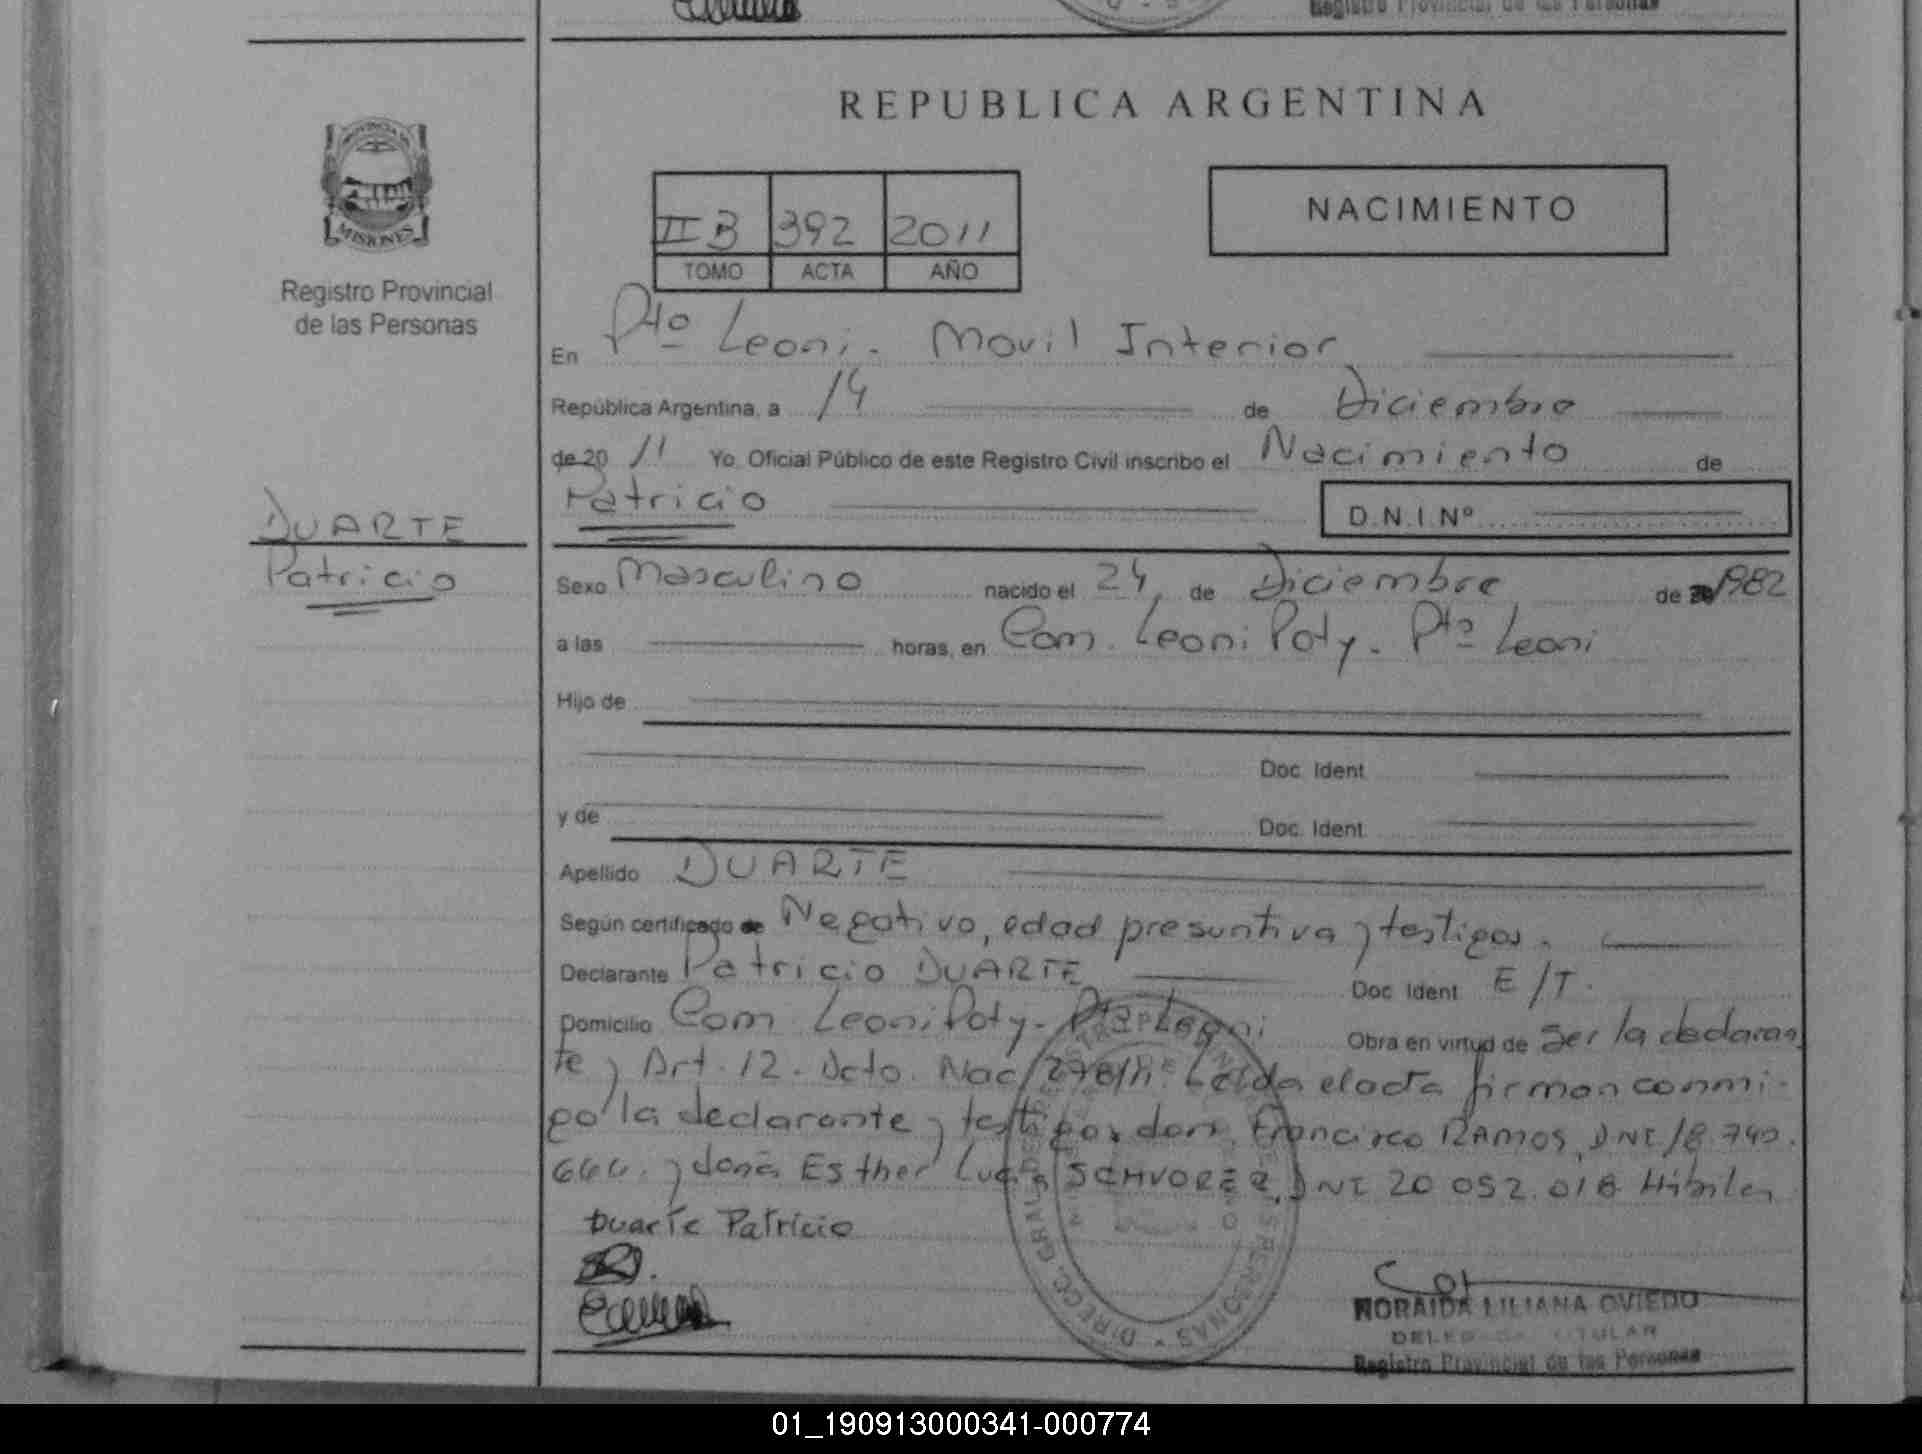 Registro Provincial de las Personas
REPUBLICA ARGENTINA
PROVINCIA DE
MISIONES
Registro Provincial
de las Personas
II B 392 2011
TOMO ACTA AÑO
NACIMIENTO
En Pto Leoni. Movil Interior
República Argentina, a 14 de Diciembre
de 20 11 Yo, Oficial Público de este Registro Civil inscribo el Nacimiento de
Patricio D.N.I.Nº
DUARTE
Patricio
Sexo Masculino nacido el 24 de Diciembre de 1982
a las horas, en Com. Leoni Poty. Pto Leoni
Hijo de
Doc. Ident
y de Doc. Ident
Apellido DUARTE
Según certificado de Negativo, edad presuntiva y testigos.
Declarante Patricio DUARTE Doc Ident E/T.
Domicilio Com Leoni Poty. Pto Leoni Obra en virtud de Ser la declaran
te y Art. 12. Dcto. Nac/278/11. Leída el acta firman conmi-
go la declarante y testigos don Francisco RAMOS, DNI 18 740.
666. y doña Esther Lucia SCHVORER, DNI 20 052.018 Hábiles
Duarte Patricio
DIRECC GRAL DE REGISTRO PROVINCIAL DE LAS PERSONAS
NORAIDA LILIANA OVIEDO
DELEGADA TITULAR
Registro Provincial de las Personas
01_190913000341-000774